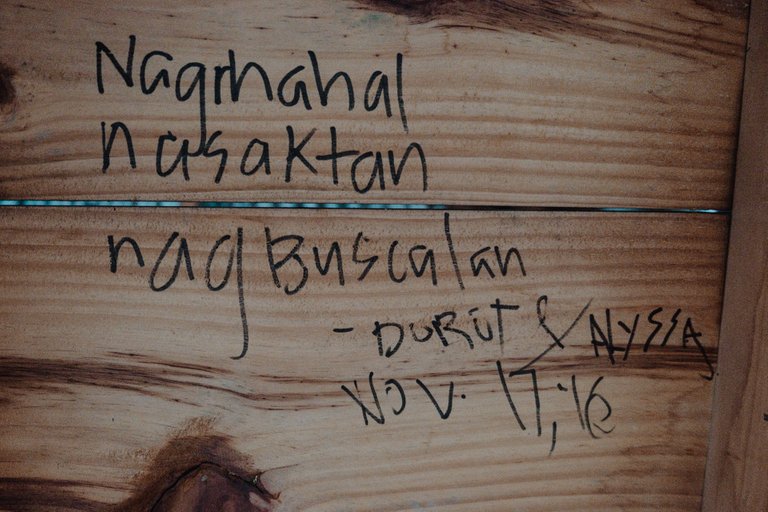 Nagmahal
nasaktan
nagBuscalan
- DOROT & ALYSSA
NOV. 17, '16